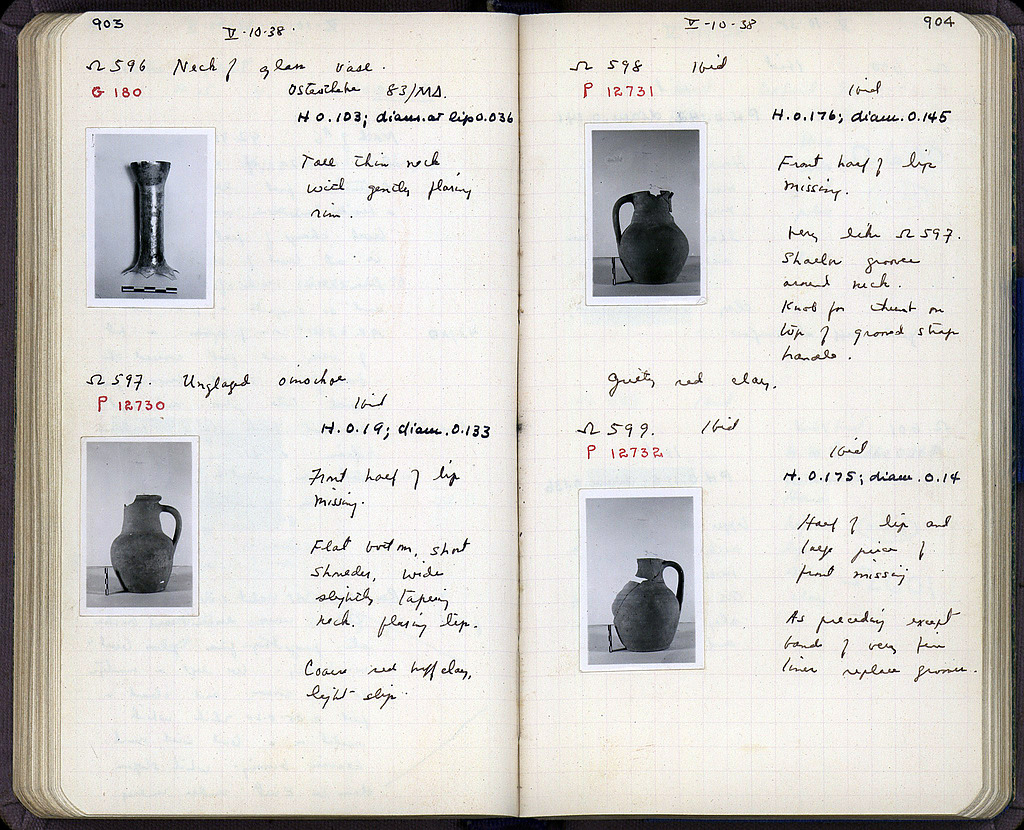 903
V-10-38
Ω 596 Neck of glass vase.
G 180
83/ΜΔ.
H 0.103; diam. at lip 0.036
Tall thin neck
with gently flaring
rim.
Ω 597. Unglazed oinochoe
P 12730
Ibid
H. 0.19; diam. 0.133
Front half of lip
missing.
Flat bottom, short
shoulder, wide
slightly tapering
neck, flaring lip.
Coarse red buff clay,
light slip.
V-10-38
904
Ω 598 Ibid
P 12731
Ibid
H. 0.176; diam. 0.145
Front half of lip
missing.
Very like Ω 597.
Shallow groove
around neck.
Knob for thumb on
top of grooved strap
handle.
Gritty red clay.
Ω 599. Ibid
P 12732
Ibid
H. 0.175; diam. 0.14
Half of lip and
large piece of
front missing
As preceding except
bands of very fine
lines replace groove.